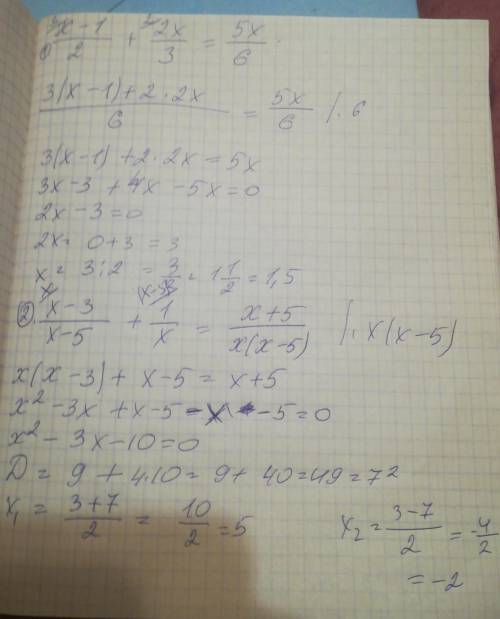 ① (x-1)/2 + 2x/3 = 5x/6
(3(x-1)+2·2x)/6 = 5x/6 /·6
3(x-1)+2·2x=5x
3x-3+4x-5x=0
2x-3=0
2x=0+3=3
x=3:2=3/2=1 1/2=1,5
② (x-3)/(x-5) + 1/x = (x+5)/(x(x-5)) /·x(x-5)
x(x-3)+x-5=x+5
x²-3x+x-5-x-5=0
x²-3x-10=0
D=9+4·10=9+40=49=7²
x₁=(3+7)/2=10/2=5 x₂=(3-7)/2=-4/2
=-2